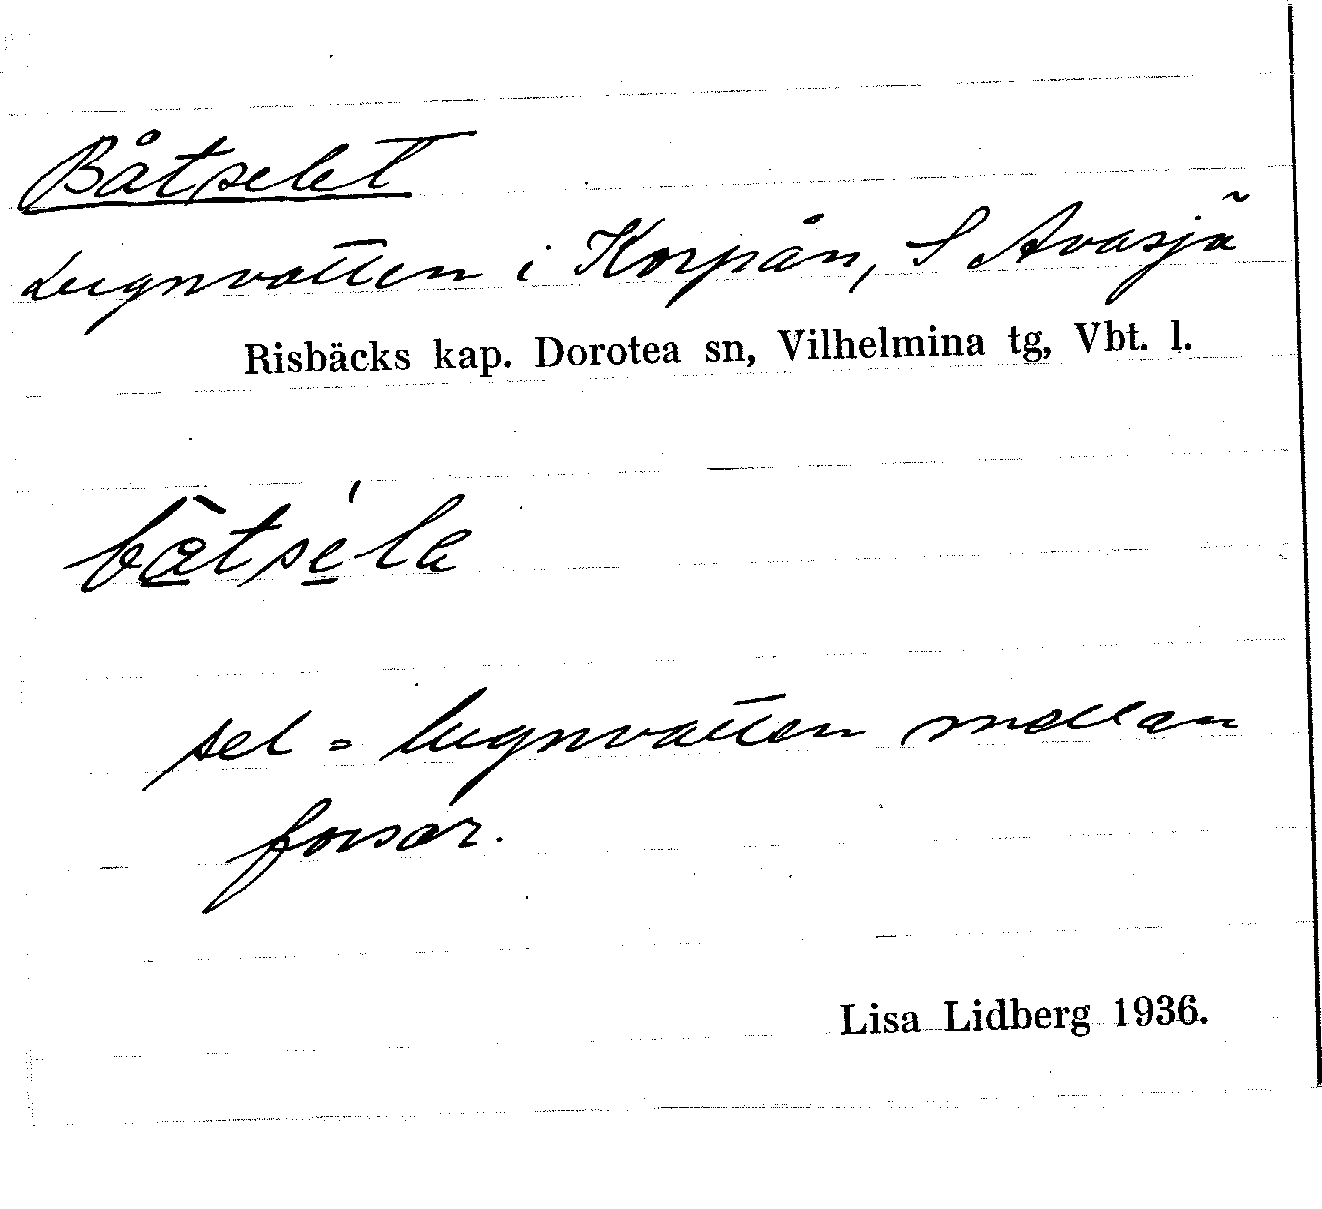 Båtselet
Lugnvatten i Korpån, S Avasjö
Risbäcks kap. Dorotea sn, Vilhelmina tg, Vbt. l.
sel = lugnvatten mellan
forsar.
Lisa Lidberg 1936.